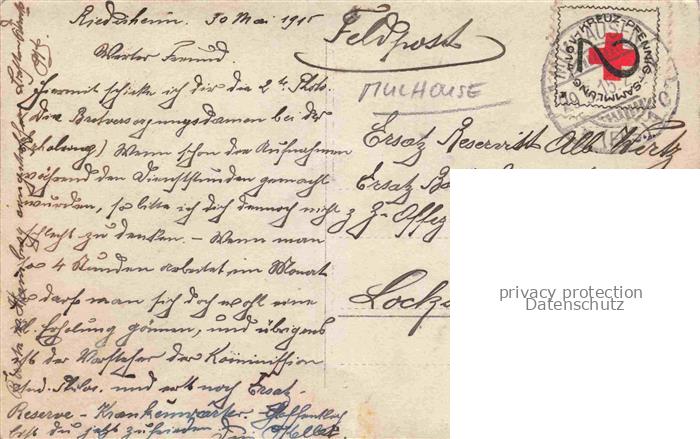 Riedisheim. 30 Mai 1915
Werter Freund.
Hiermit schicke ich dir die 2te Photo.
Die Brotversorgungsdamen bei der
Erholung) Wenn schon die Aufnahmen
während den Dienststunden gemacht
wurden, so bitte ich dich dennoch nicht
schlecht zu denken. – Wenn man
so 4 Stunden arbeitet im Monat
so darf man sich doch wohl eine
kl. Erholung gönnen, und übrigens
ist der Vorsteher der Kommission
Philos. und erst noch Ersatz-
Reserve-Krankenwärter. Hoffentlich
bist du jetzt zufrieden. Dein
Feldpost
MULHOUSE
Ersatz Reservist Alb. Hertz
Ersatz
z. Z. Offiz
Lock
ROTE-KREUZ-PFENNIG-SAMMLUNG
2
privacy protection
Datenschutz